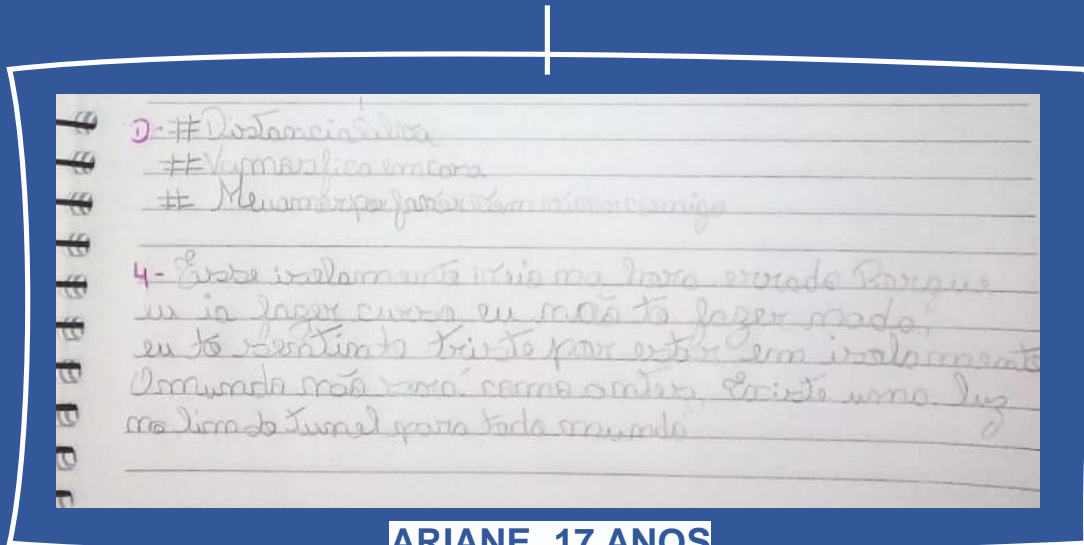 1-#DistanciaSalva
#Vamosficaemcasa
# Meuamorporfavorvem vivercomigo
4- Esse isolamento veio na hora errada Porque
eu ia fazer curso eu não to fazer nada,
eu to sentindo triste por estir em isolamento
O mundo não será como antes, Existe uma luz
no fim do tunel para todo mundo
ARIANE, 17 ANOS